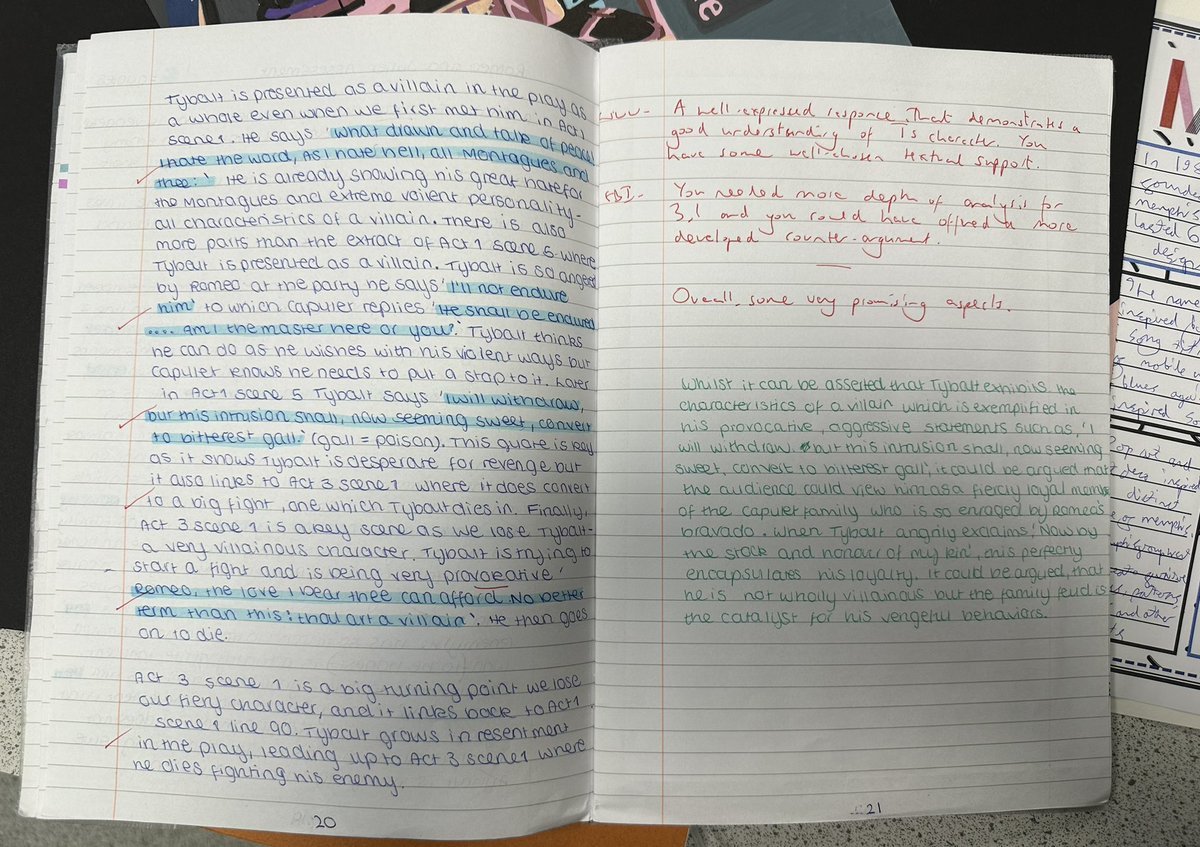 Tybalt is presented as a villain in the play as
a whole even when we first met him in Act 1
scene 1. He says 'what drawn and talk of peace,
I hate the word, as I hate hell, all Montagues and
thee:' He is already showing his great hate for
the Montagues and extreme voilent personality-
all characteristics of a villain. There is also
more parts than the extract of Act 1 scene 5 where
Tybalt is presented as a villain. Tybalt is so angered
by Romeo at the party he says 'I'll not endure
him' to which Capulet replies 'He shall be endured
.... am I the master here or you'. Tybalt thinks
he can do as he wishes with his violent ways but
Capulet knows he needs to put a stop to it. Later
in Act 1 scene 5 Tybalt says 'I will withdraw,
but this intrusion shall, now seeming sweet, convert
to bitterest gall.' (gall = poison). This quote is key
as it shows Tybalt is desperate for revenge but
it also links to Act 3 scene 1 where it does convert
to a big fight, one which Tybalt dies in. Finally,
Act 3 scene 1 is a key scene as we lose Tybalt-
a very villainous character. Tybalt is trying to
start a fight and is being very provocative '
Romeo, the love I bear thee can afford No better
term than this: thou art a villain'. He then goes
on to die.
Act 3 scene 1 is a big turning point we lose
our fiery character, and it links back to Act 1
scene 1 line 90. Tybalt grows in resentment
in the play, leading up to Act 3 scene 1 where
he dies fighting his enemy.
20
WWW- A well-expressed response that demonstrates a
good understanding of T's character. You
have some well-chosen textual support.
EBI- You needed more depth of analysis for
3,1 and you could have offered a more
developed counter-argument.
Overall, some very promising aspects.
Whilst it can be asserted that Tybalt exhibits the
characteristics of a villain which is exemplified in
his provocative, aggressive statements such as, 'I
will withdraw. but this intrusion shall, now seeming
sweet, convert to bitterest gall', it could be argued that
the audience could view him as a fiercly loyal membe
of the Capulet family who is so enraged by Romeo's
bravado. When Tybalt angrily exclaims, 'Now by
the stock and honour of my kin', this perfectly
encapsulates his loyalty. It could be argued, that
he is not wholly villainous but the family feud is
the catalyst for his vengeful behaviors.
21
In 198
memphis
lasted
design
The name
inspired b
song
mobile
blues agai
inspired 20
Pop art and
deco inspired
distinct
of memphis
patterns
and other